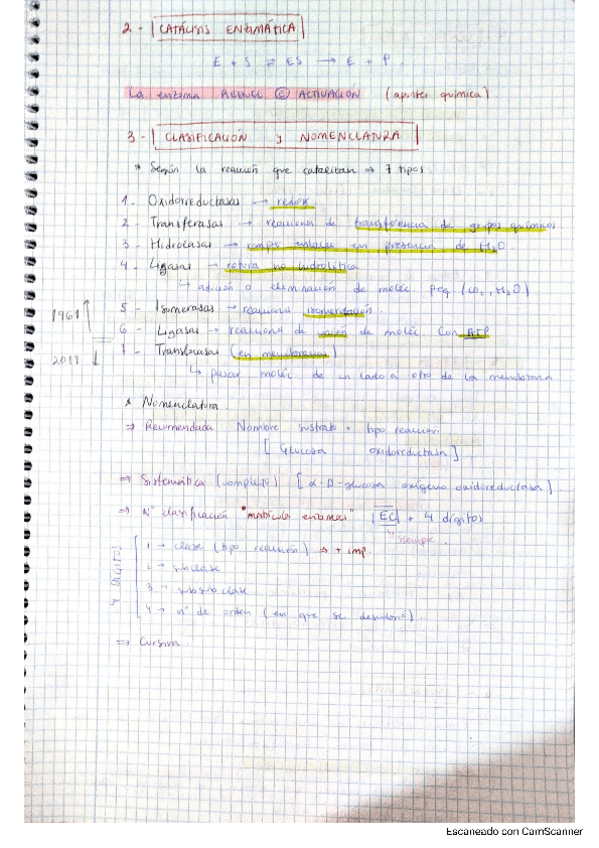 2 - CATÁLISIS ENZIMÁTICA
E + S ⇌ ES → E + P.
La enzima REDUCE Ⓔ ACTIVACIÓN (apuntes química)
3 - CLASIFICACIÓN y NOMENCLATURA
* Según la reacción que catalizan ⇒ 7 tipos.
1 - Oxidorreductasas → redox.
2 - Transferasas → reacciones de transferencia de grupos químicos
3 - Hidrolasas → rompe enlaces en presencia de H2O
4 - Ligasas → rotura no hidrolítica
↳ adición o eliminación de moléc peq (CO2, H2O)
5 - Isomerasas → reacciones isomerización.
1961 ↑
6 - Ligasas → reacciones de unión de moléc. con ATP
2018 ↓
7 - Translocasas (en membranas)
↳ pasar moléc de un lado a otro de la membrana
* Nomenclatura.
⇒ Recomendada Nombre sustrato + tipo reacción
[ Glucosa oxidorreductasa ]
⇒ Sistemática (completo) [ α-D-glucosa oxígeno oxidorreductasa ].
⇒ Nº clasificación "matrícula enzimas" EC + 4 dígitos
↳ siempre.
4 DÍGITOS
1 → clase (tipo reacción) ⇒ + imp.
2 → subclase
3 → subsubclase
4 → nº de orden (en que se
⇒ Cursiva.
Escaneado con CamScanner